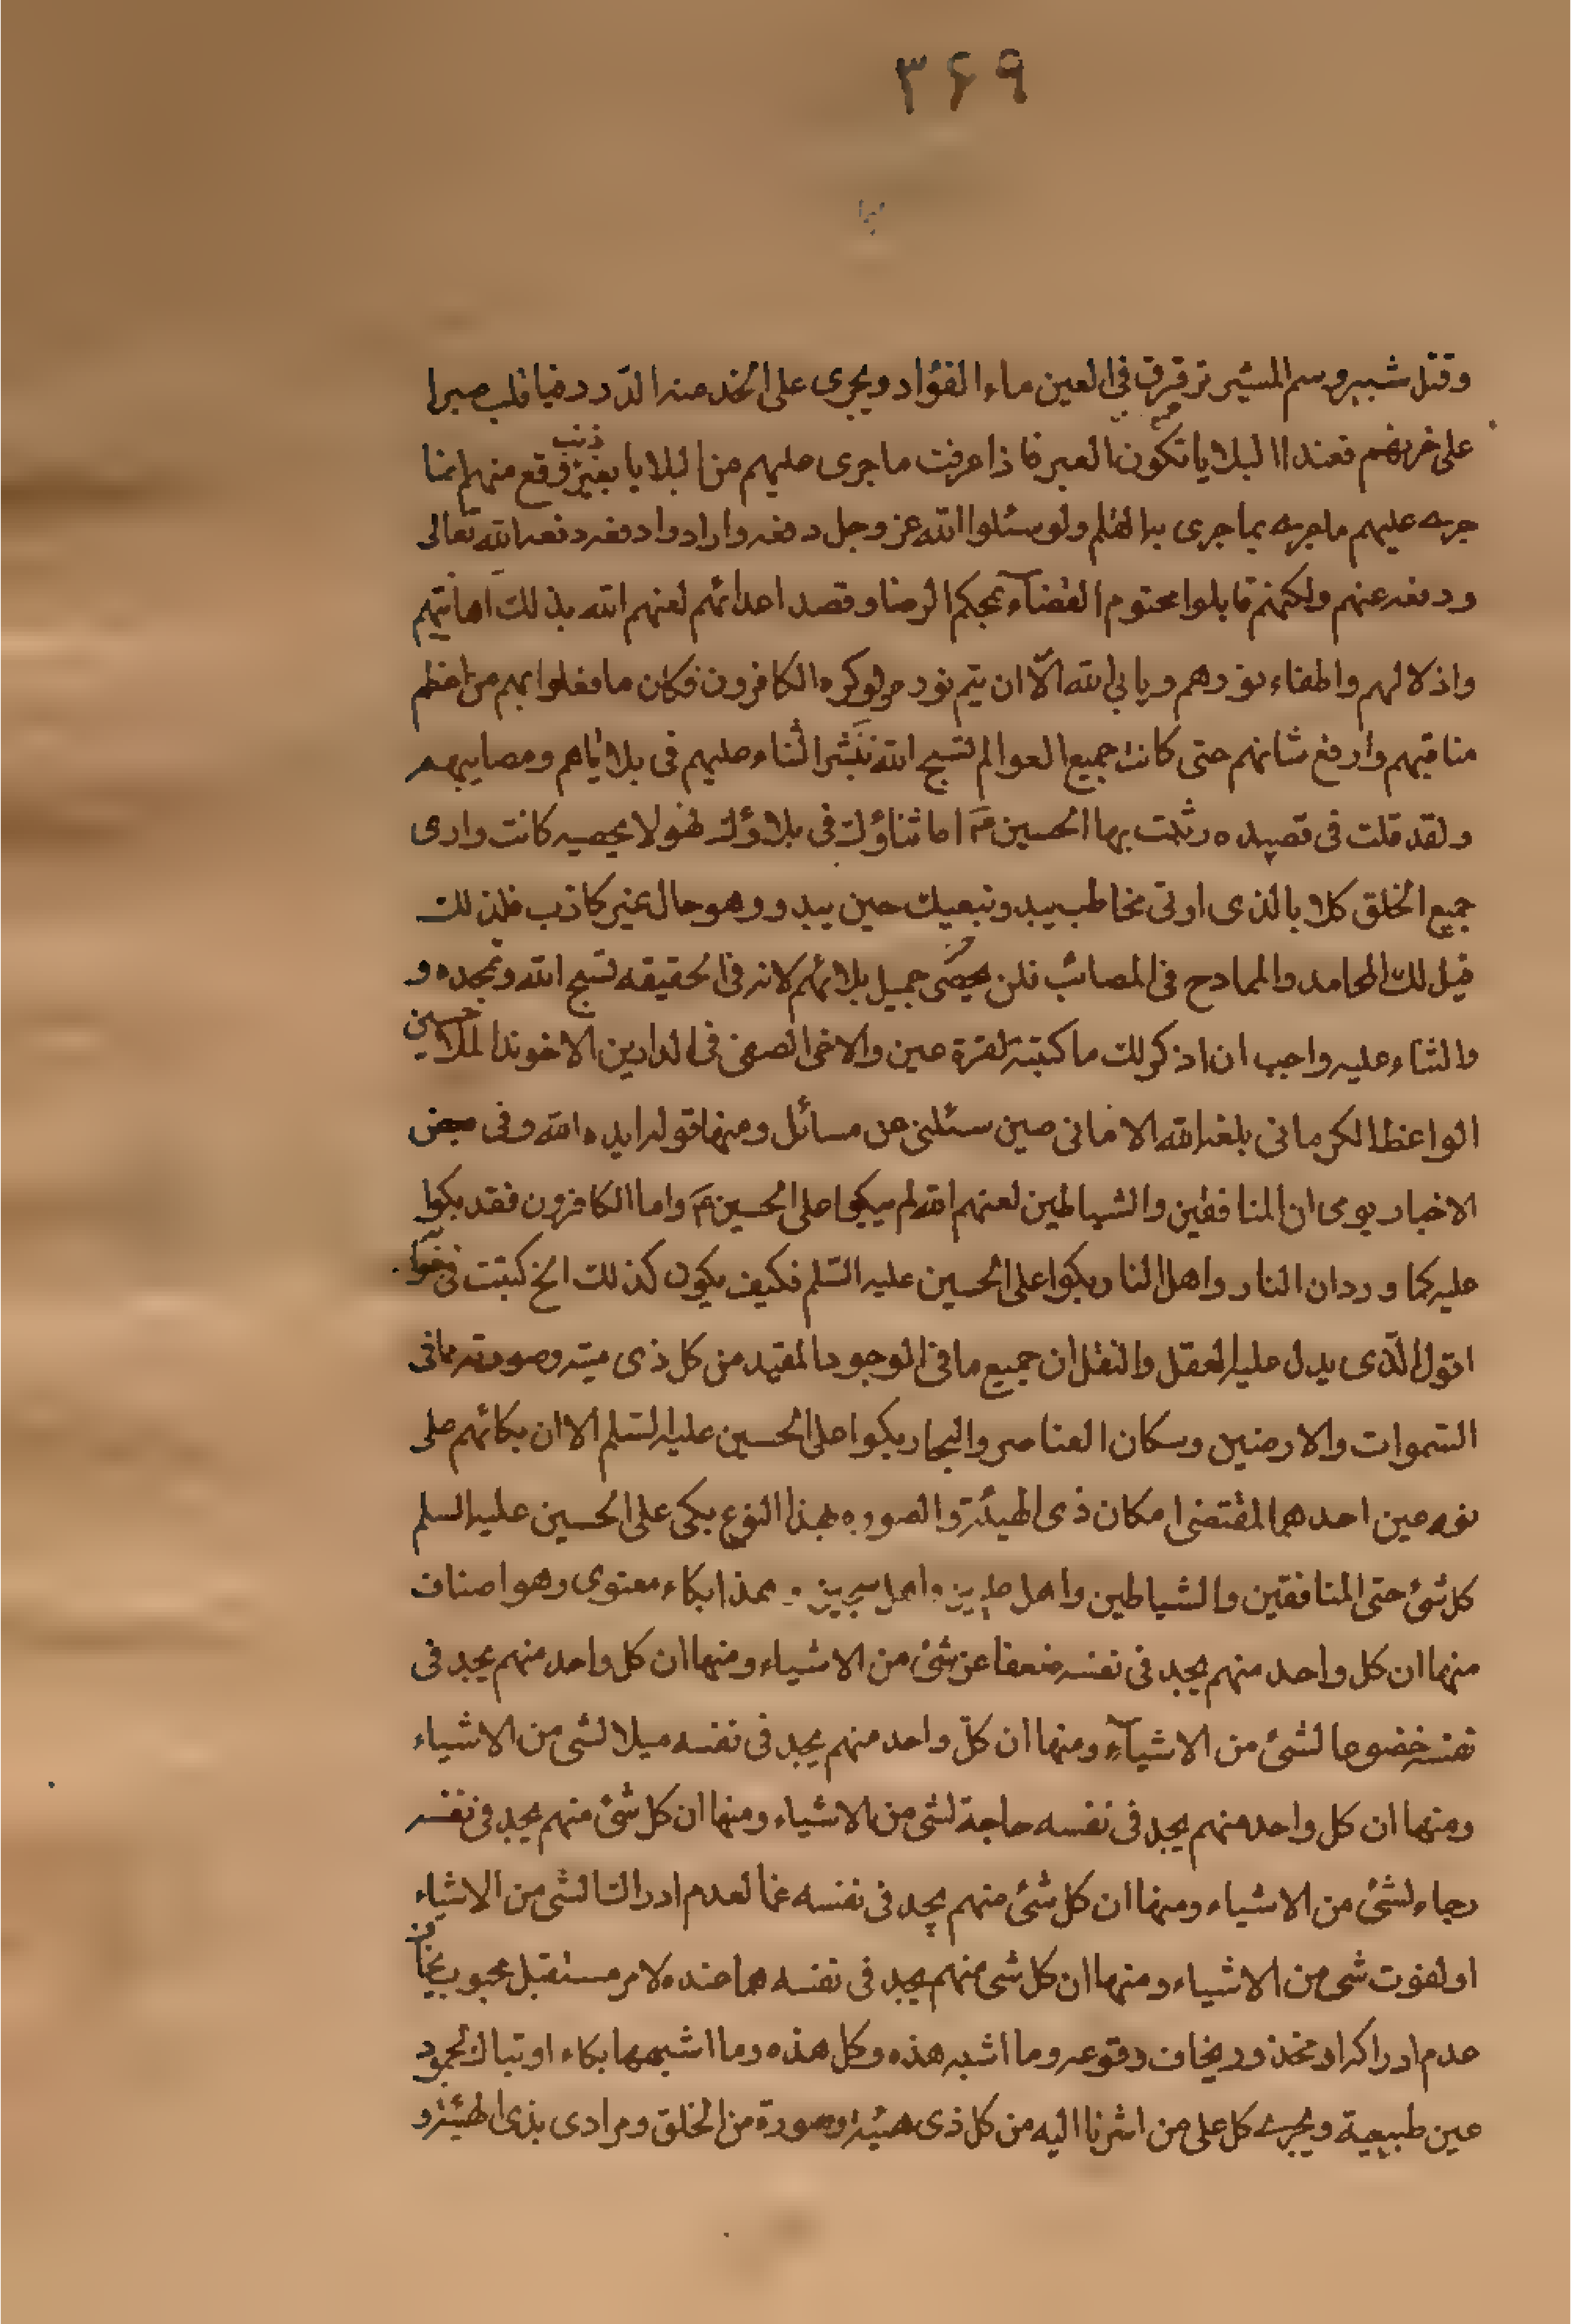 ۳۶۹
وقتل شبير وسم المشبر ترقرق فى العين ماء الفؤاد ويجرى على الخد منه الدّرر فيا قلب صبرا
على فعند البلايا تكون العبر فاذا عرفت ما جرى عليهم من البلايا بغير ذنب وقع منهم انما
جرى عليهم ماجرى بما جرى به القلم ولو سئلوا الله عز وجل دفعه وارادوا دفعه دفعه الله تعالى
ودفعه عنهم ولكنهم قابلوا محتوم القضاء بمحكم الرضا وقصد اعدائهم لعنهم الله بذلك اهانتهم
واذلالهم واطفاء نورهم ويابى الله الّا ان يتم نوره ولو كره الكافرون فكان ما فعلوا بهم من اعظم
مناقبهم وارفع شانهم حتى كانت جميع العوالم تسبح الله بنشر الثناء عليهم فى بلائاهم ومصايبهم
ولقد قلت فى قصيده رثيت بها الحسين ع اما ثناؤك فى بلاؤك فهو لا يحصيه كانت وارى
جميع الخلق كلا بالذى اوتى مخاطب يبد ونبعيك حين يبدو وهو حال غير كاذب فلذلك
قيل لك المحامد والممادح فى المصائب فلن يحصى جميل بلائهم لانه فى الحقيقه تسبح الله وتمجده و
والثناء عليه واحب ان اذكر لك ما كتبته لقرة عين والاخى الصفى فى الدارين الاخوند الملا حسين
الواعظ الكرمانى بلغه الله الامانى حين سئلنى عن مسائل ومنها قوله ايده الله وفى بعض
الاخبار يومى ان المنافقين والشياطين لعنهم الله لم يبكوا على الحسين ع واما الكافرون فقد بكوا
عليه كما ورد ان النار واهل النار بكوا على الحسين عليه السّلم فكيف يكون كذلك الخ كتبت فى
اقول الّذى يدل عليه العقل والنقل ان جميع ما فى الوجود المقيد من كل ذى هيئته وصورته مما فى
السّموات والارضين وسكان العناصر والبحار بكوا على الحسين عليه السّلم الا ان بكائهم على
نوعين احدهما المقتضى امكان ذى الهيئة والصوره بهذا النوع بكى على الحسين عليه السلم
كل شئ حتى المنافقين والشياطين واهل واهل سجين وهذا بكاء معنوى وهو اصناف
منها ان كل واحد منهم يجد فى نفسه ضعفا عن شئ من الاشياء ومنها ان كل واحد منهم يجد فى
نفسه خضوعا لشئ من الاشياء ومنها ان كلّ واحد منهم يجد فى نفسه ميلا لشى من الاشياء
ومنها ان كل واحد منهم يجد فى نفسه حاجة لشى من الاشياء ومنها ان كل شئ منهم يجد فى نفسه
رجاء لشئ من الاشياء ومنها ان كل شئ منهم يجد فى نفسه غما لعدم ادراك لشى من الاشياء
او لفوت شى من الاشياء ومنها ان كل شى منهم يجد فى نفسه هما عنده لامر مستقبل محبوب يخاف
عدم ادراكه او محذور يخاف وقوعه وما اشبه هذه وكل هذه وما اشبهها بكاء او تباك لجمود
عين طبيعية ويجرى كل على من اشرنا اليه من كل ذى هيئة وصورة من الخلق ومرادى بذى الهيئة و